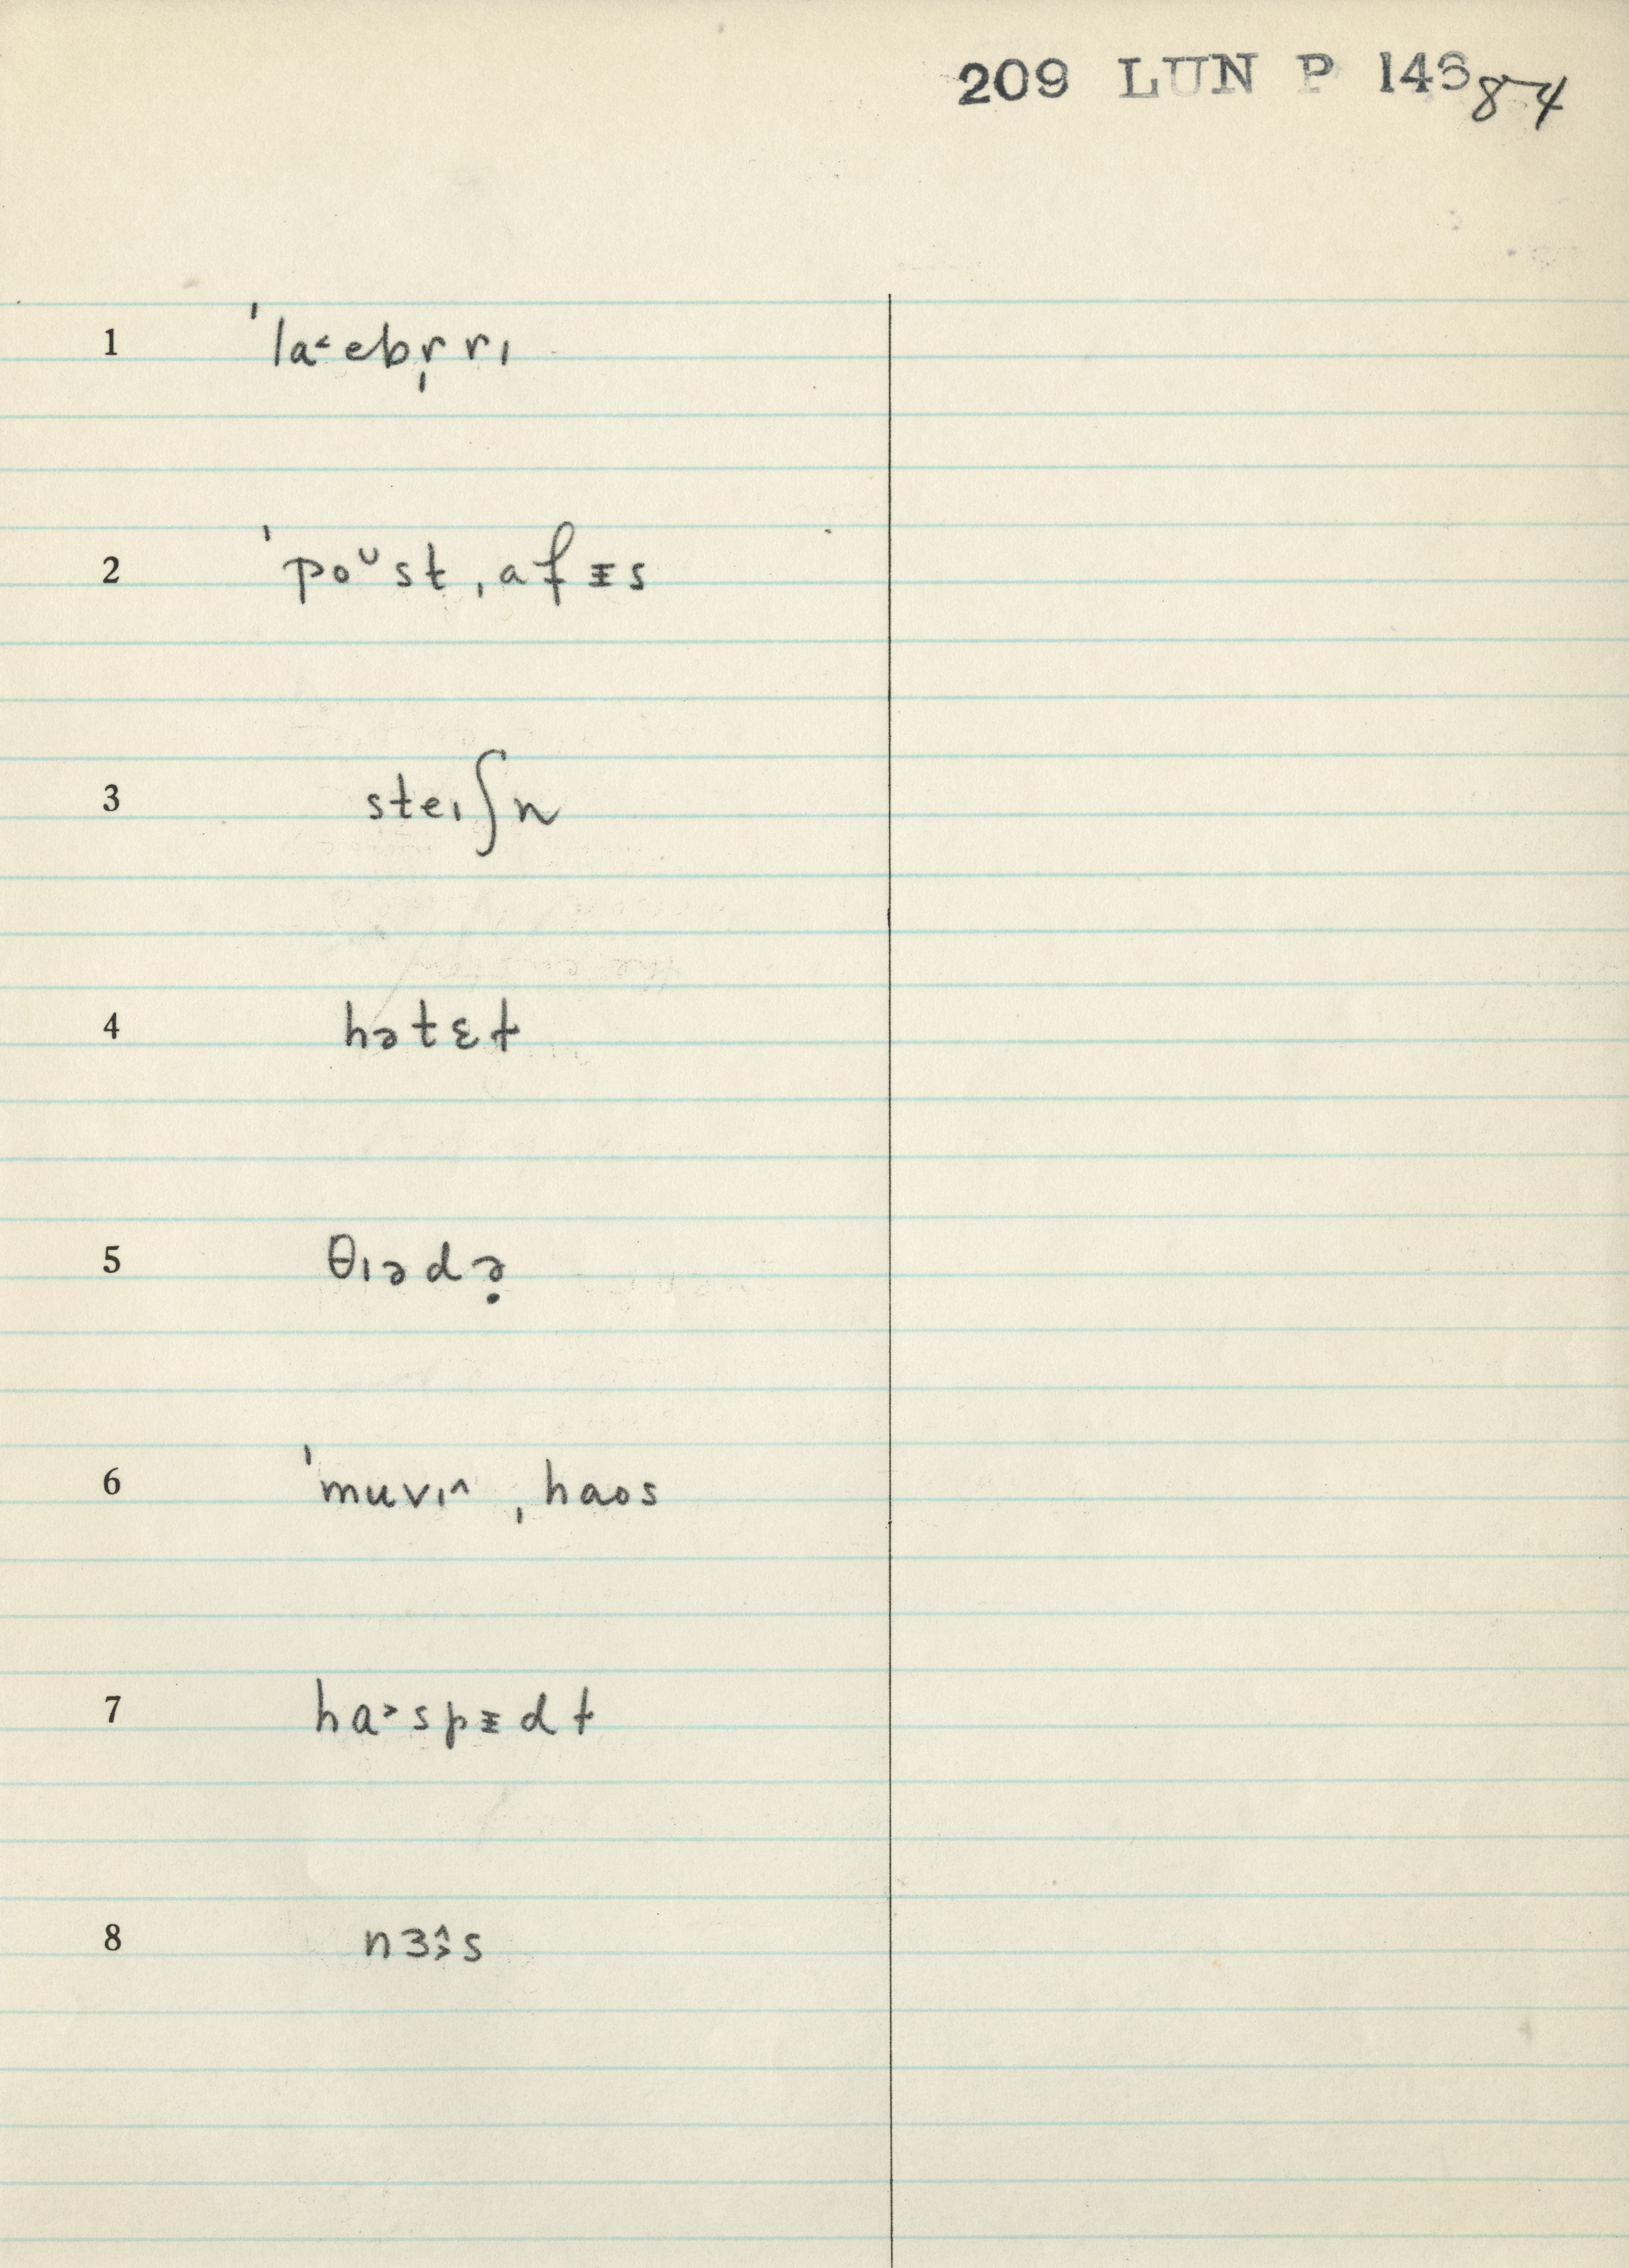 209 LUN P 14384
1 ˈla˂ebr̩rɪ
2 ˈpoᵕstˌafɪ̵s
3 steɪʃn
4 hətɛɫ
5 θɪədə̣
6 ˈmuvɪ^ ˌhaos
7 ha˃spɪ̵dɫ
8 nɜ˄˃s